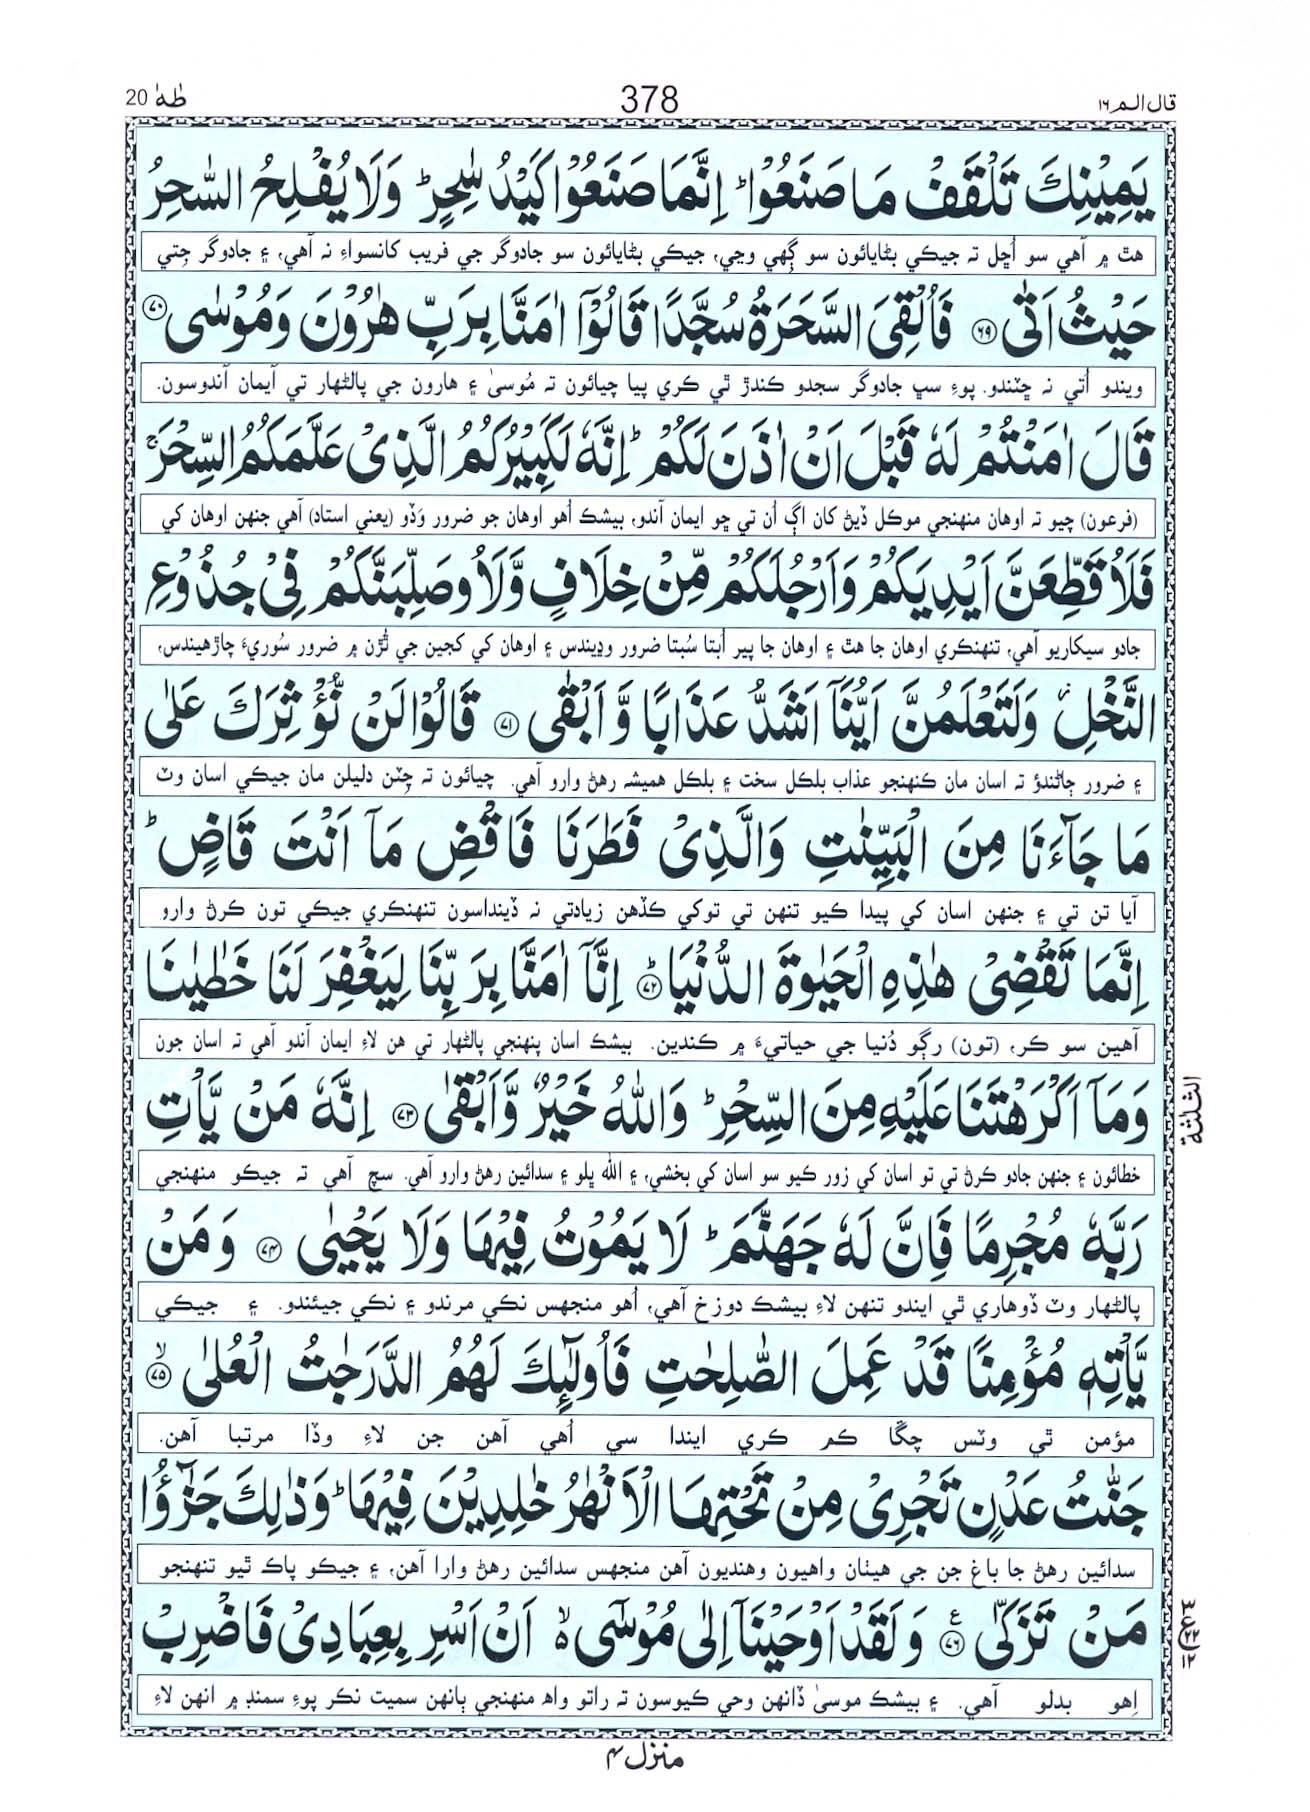 قال الم ١٦
378
طٰهٰ 20
يَمِيْنِكَ تَلْقَفْ مَا صَنَعُوْا ؕ اِنَّمَا صَنَعُوْا كَيْدُ سٰحِرٍ ؕ وَلَا يُفْلِحُ السّٰحِرُ
هٿ ۾ آهي سو اُڇل ته جيڪي بڻايائون سو ڳِهي وڃي، جيڪي بڻايائون سو جادوگر جي فريب کانسواءِ نه آهي، ۽ جادوگر جِتي
حَيْثُ اَتٰى ۝٦٩ فَاُلْقِيَ السَّحَرَةُ سُجَّدًا قَالُوْۤا اٰمَنَّا بِرَبِّ هٰرُوْنَ وَمُوْسٰى ۝٧٠
ويندو اُتي نه ڇٽندو. پوءِ سڀ جادوگر سجدو ڪندڙ ٿي ڪري پيا چيائون ته مُوسىٰ ۽ هارون جي پالڻهار تي اَيمان آندوسون.
قَالَ اٰمَنْتُمْ لَهٗ قَبْلَ اَنْ اٰذَنَ لَكُمْ ؕ اِنَّهٗ لَكَبِيْرُكُمُ الَّذِيْ عَلَّمَكُمُ السِّحْرَ ۚ
(فرعون) چيو ته اوهان منهنجي موڪل ڏيڻ کان اڳ اُن تي ڇو ايمان آندو، بيشڪ اُهو اوهان جو ضرور وَڏو (يعني استاد) آهي جنهن اوهان کي
فَلَاُقَطِّعَنَّ اَيْدِيَكُمْ وَاَرْجُلَكُمْ مِّنْ خِلَافٍ وَّلَاُوصَلِّبَنَّكُمْ فِيْ جُذُوْعِ
جادو سيکاريو آهي، تنهنڪري اوهان جا هٿ ۽ اوهان جا پير اُبتا سُبتا ضرور وڍيندس ۽ اوهان کي کجين جي ٿُڙن ۾ ضرور سُوريءَ چاڙهيندس،
النَّخْلِ ؗ وَلَتَعْلَمُنَّ اَيُّنَاۤ اَشَدُّ عَذَابًا وَّاَبْقٰى ۝٧١ قَالُوْا لَنْ نُّؤْثِرَكَ عَلٰى
۽ ضرور ڄاڻندؤ ته اسان مان ڪنهنجو عذاب بلڪل سخت ۽ بلڪل هميشہ رهڻ وارو آهي. چيائون ته چِٽن دليلن مان جيڪي اسان وٽ
مَا جَآءَنَا مِنَ الْبَيِّنٰتِ وَالَّذِيْ فَطَرَنَا فَاقْضِ مَاۤ اَنْتَ قَاضٍ ؕ
آيا تن تي ۽ جنهن اسان کي پيدا ڪيو تنهن تي توکي ڪڏهن زيادتي نه ڏينداسون تنهنڪري جيڪي تون ڪرڻ وارو
اِنَّمَا تَقْضِيْ هٰذِهِ الْحَيٰوةَ الدُّنْيَا ؕ۝٧٢ اِنَّاۤ اٰمَنَّا بِرَبِّنَا لِيَغْفِرَ لَنَا خَطٰيٰنَا
آهين سو ڪر، (تون) رڳو دُنيا جي حياتيءَ ۾ ڪندين. بيشڪ اسان پنهنجي پالڻهار تي هن لاءِ ايمان آندو آهي ته اسان جون
وَمَاۤ اَكْرَهْتَنَا عَلَيْهِ مِنَ السِّحْرِ ؕ وَاللّٰهُ خَيْرٌ وَّاَبْقٰى ۝٧٣ اِنَّهٗ مَنْ يَّاْتِ
خطائون ۽ جنهن جادو ڪرڻ تي تو اسان کي زور ڪيو سو اسان کي بخشي، ۽ الله ڀلو ۽ سدائين رهڻ وارو آهي. سچ آهي ته جيڪو منهنجي
الثلثة
رَبَّهٗ مُجْرِمًا فَاِنَّ لَهٗ جَهَنَّمَ ؕ لَا يَمُوْتُ فِيْهَا وَلَا يَحْيٰى ۝٧٤ وَمَنْ
پالڻهار وٽ ڏوهاري ٿي ايندو تنهن لاءِ بيشڪ دوزخ آهي، اُهو منجهس نڪي مرندو ۽ نڪي جيئندو. ۽ جيڪي
يَّاْتِهٖ مُؤْمِنًا قَدْ عَمِلَ الصّٰلِحٰتِ فَاُولٰٓئِكَ لَهُمُ الدَّرَجٰتُ الْعُلٰى ۙ۝٧٥
مؤمن ٿي وٽس چڱا ڪم ڪري ايندا سي اُهي آهن جن لاءِ وڏا مرتبا آهن.
جَنّٰتُ عَدْنٍ تَجْرِيْ مِنْ تَحْتِهَا الْاَنْهٰرُ خٰلِدِيْنَ فِيْهَا ؕ وَذٰلِكَ جَزٰٓؤُا
سدائين رهڻ جا باغ جن جي هيٺان واهيون وهنديون آهن منجهس سدائين رهڻ وارا آهن، ۽ جيڪو پاڪ ٿيو تنهنجو
مَنْ تَزَكّٰى ۝٧٦ ع وَلَقَدْ اَوْحَيْنَاۤ اِلٰى مُوْسٰۤى ۙ۬ اَنْ اَسْرِ بِعِبَادِيْ فَاضْرِبْ
٣ ع ٢٢ ١٢
اِهو بدلو آهي. ۽ بيشڪ موسىٰ ڏانهن وحي ڪيوسون ته راتو واھ منهنجي ٻانهن سميت نڪر پوءِ سمنڊ ۾ انهن لاءِ
منزل ٤